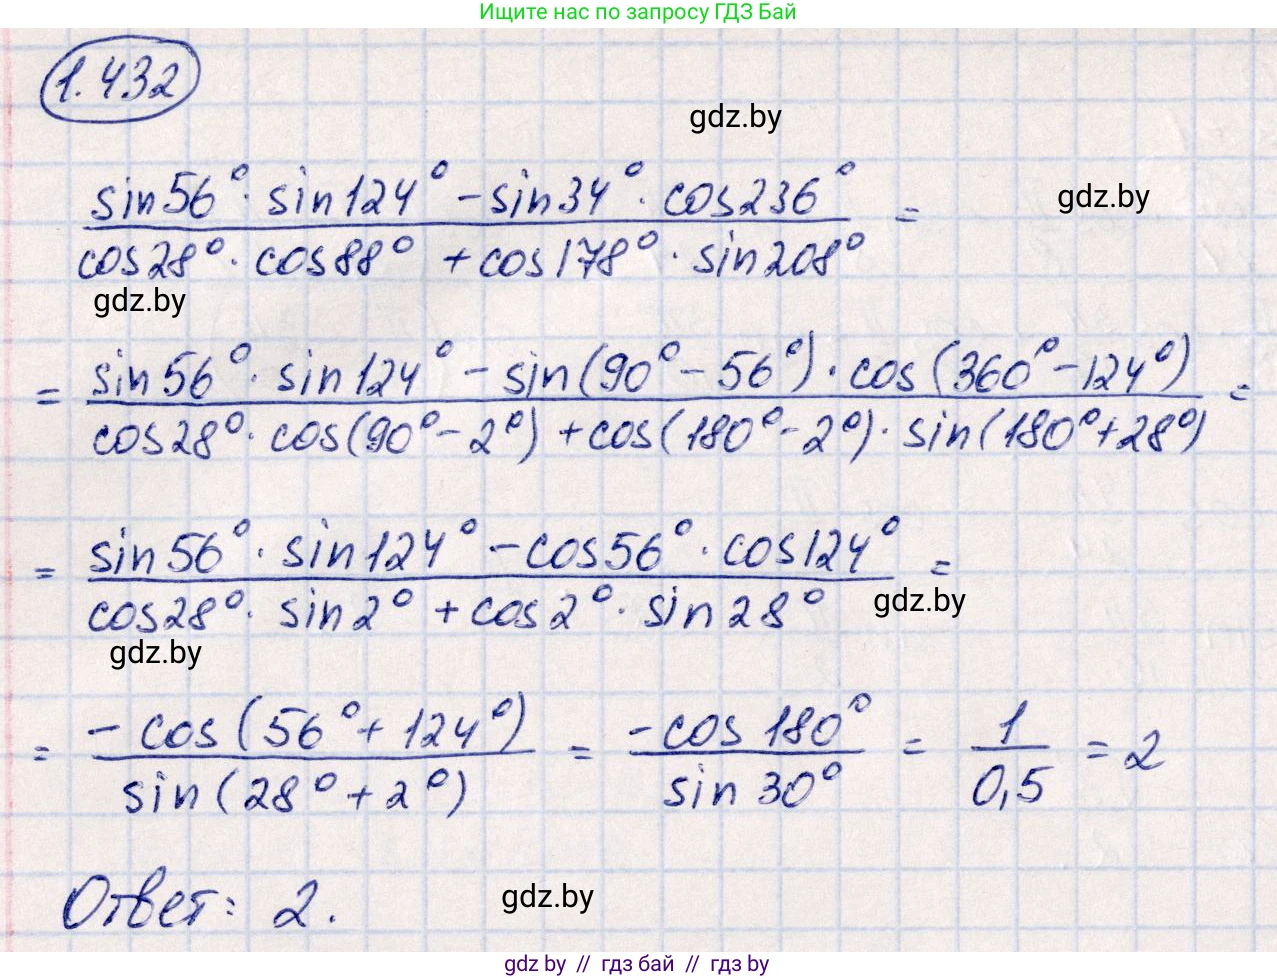 Ищите нас по запросу ГДЗ Бай
1.432
gdz.by
sin56°· sin124° - sin34°· cos236° =
gdz.by
cos28°· cos88° + cos178°· sin208°
gdz.by
= sin56°· sin124° - sin(90° - 56°)· cos(360° - 124°) =
cos28°· cos(90° - 2°) + cos(180° - 2°)· sin(180° + 28°)
= sin56°· sin124° - cos56°· cos124° =
cos28°· sin2° + cos2°· sin28°
gdz.by
gdz.by
= -cos(56° + 124°) = -cos180° = 1 = 2
sin(28° + 2°) sin30° 0,5
Ответ: 2.
gdz.by
gdz by // гдз бай // гдз by